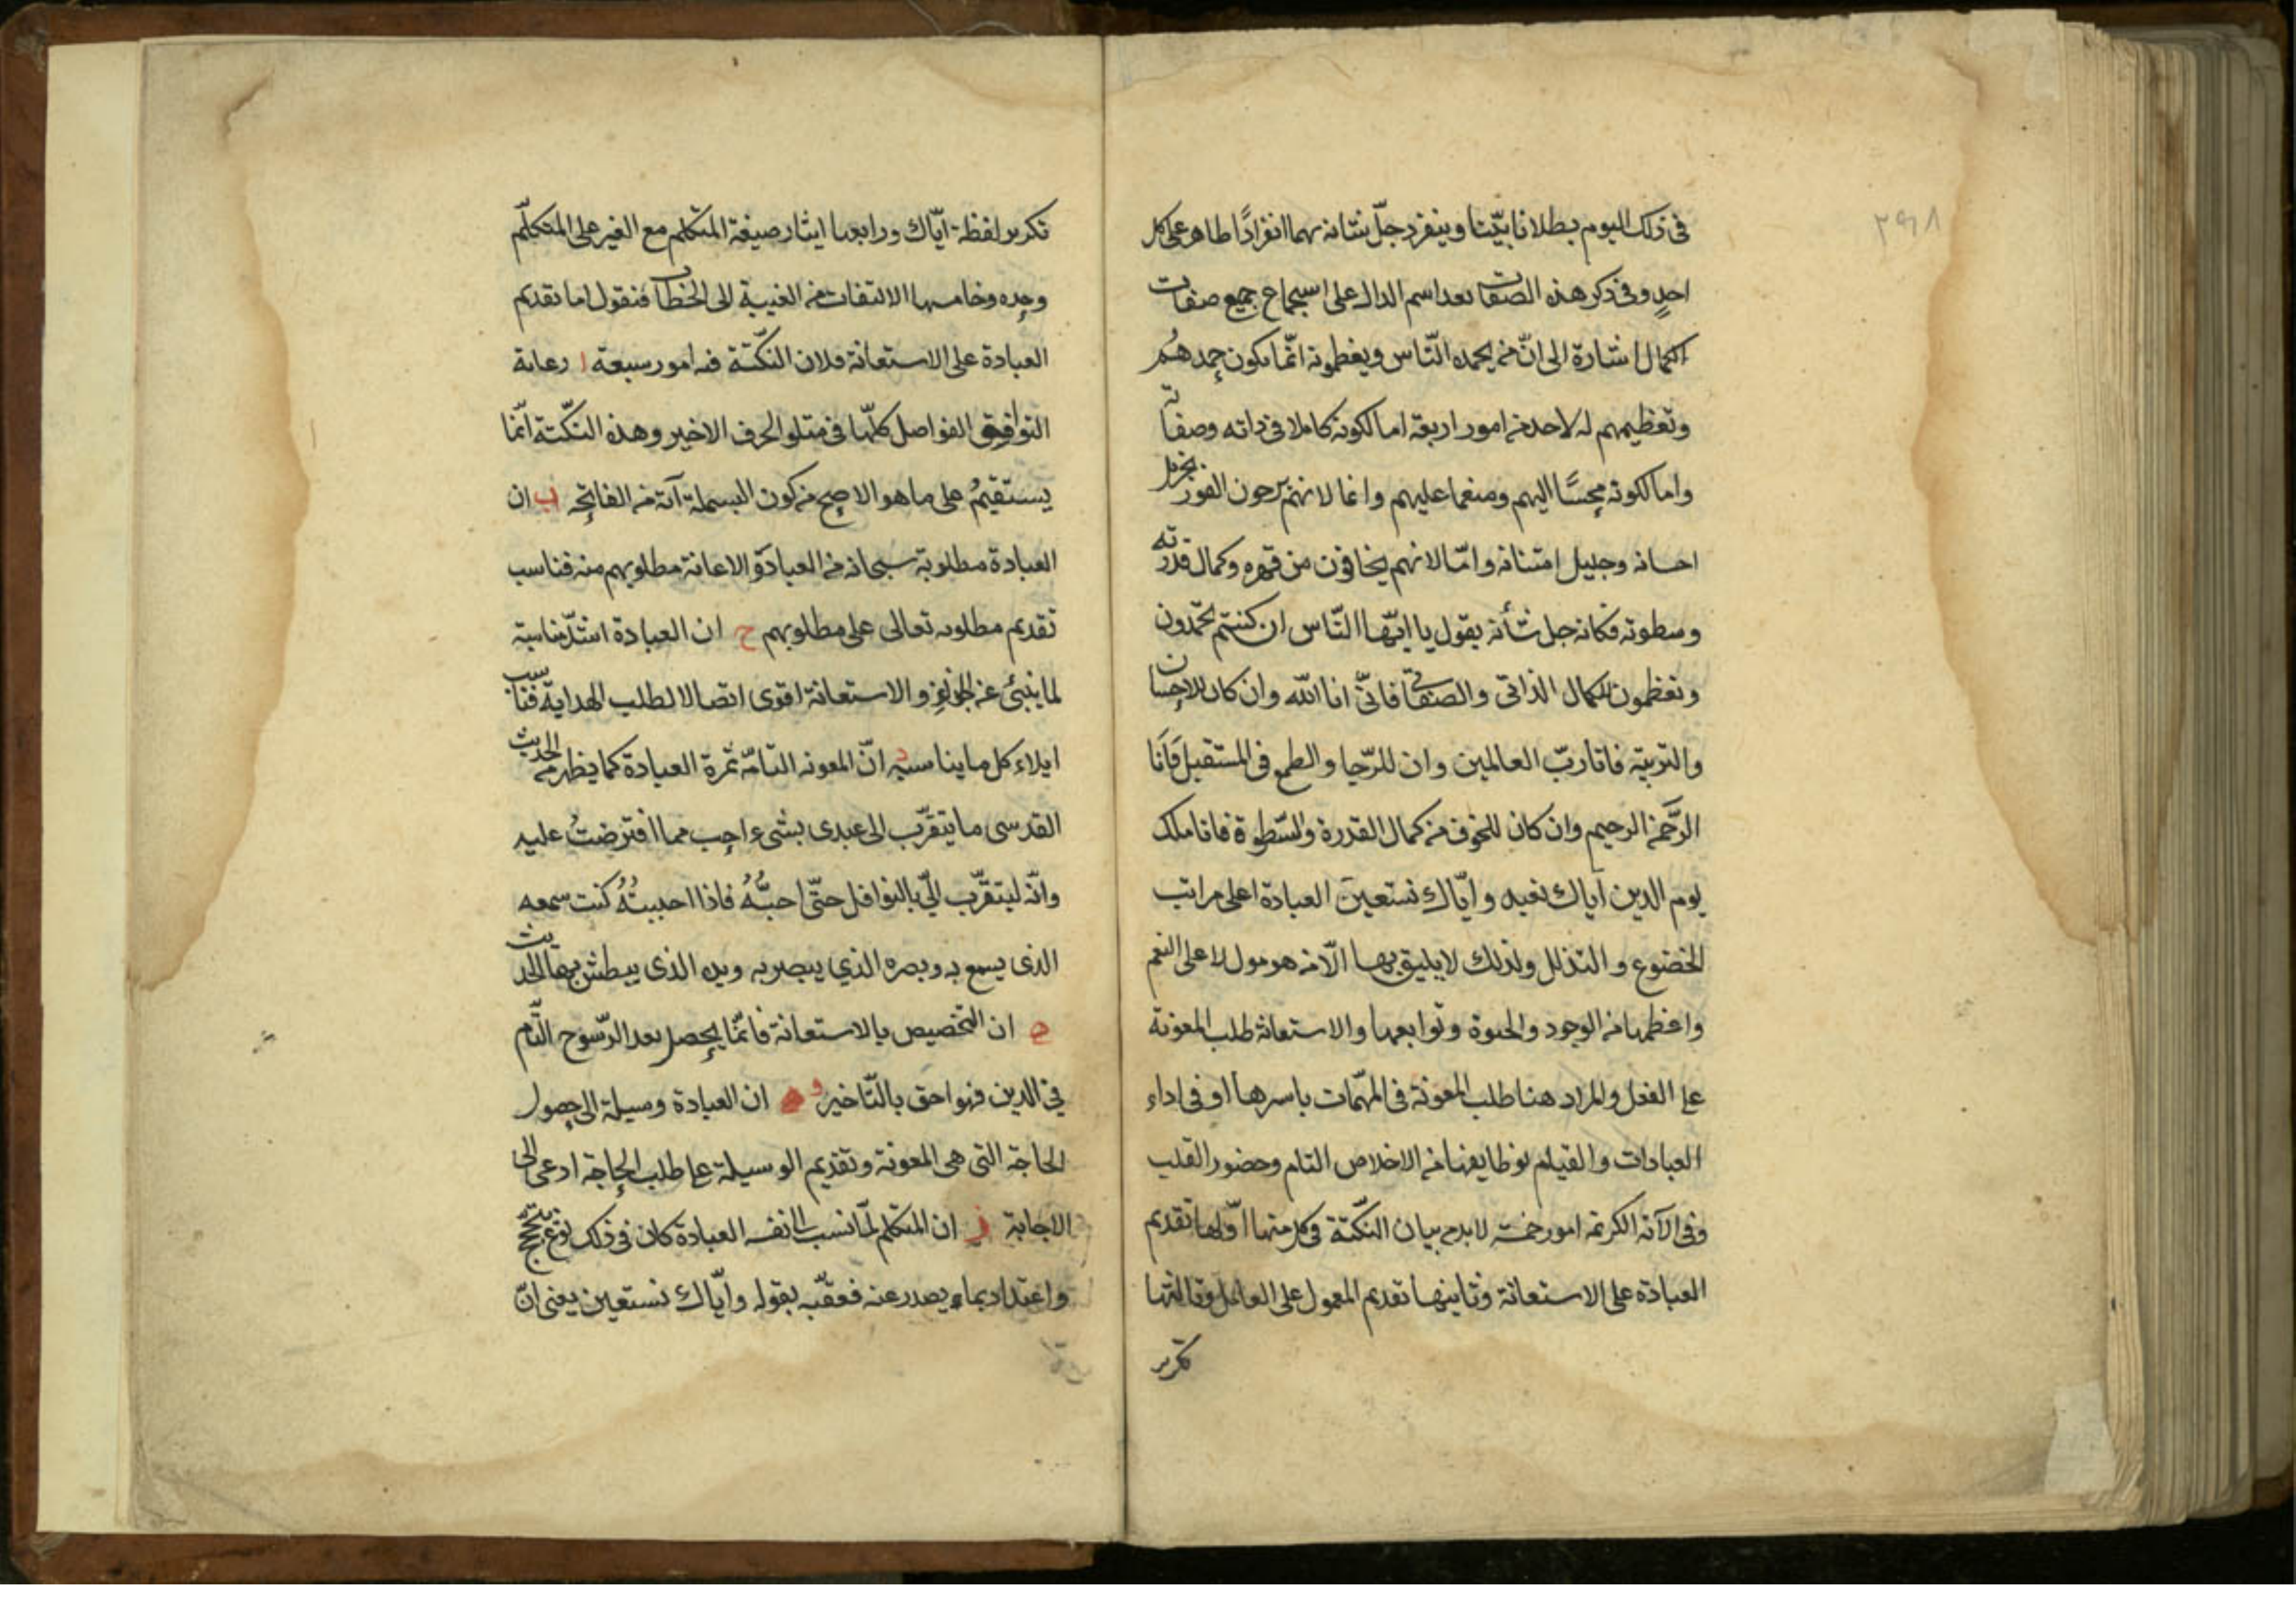 ٢٩٨
فى ذلك اليوم بطلانا بيّنا وينفرد جلّ شانه بهما انفرادًا ظاهر على كل
احدٍ وفى ذكر هذه الصفات بعد اسم الدال على استجماع جميع صفات
الكمال اشارة الى انّ من يحمده النّاس ويعظمونه انّما يكون حمدهُم
وتعظيمهم له لاحد من امور اربعة اما لكونه كاملا فى ذاته وصفاته
واما لكونه محسنًا اليهم ومنعما عليهم واما لانهم يرجون الفوز بجزيل
احسانه وجليل امتنانه وامّا لانهم يخافون من قهره وكمال قدرته
وسطوته فكانه جل شأنه يقول يا ايّها النّاس ان كنتم تحمدون
وتعظمون للكمال الذاتى والصفاتى فانّى انا اللّه وان كان للاحسان
والتربية فانا ربّ العالمين وان للرّجا والطمع فى المستقبل فَانَا
الرّحمن الرحيم وان كان للخوف من كمال القدرة والسّطوة فانا ملك
يوم الدين اياك نعبد وايّاك نستعين العبادة اعلى مراتب
الخضوع والتذلل ولذلك لا يليق بها الّا من هو مول لاعلى النعم
واعظمها من الوجود والحيوة وتوابعها والاستعانة طلب المعونة
على الفعل والمراد هنا طلب المعونة فى المهمّات باسرها او فى اداء
العبادات والقيام بوظايفها من الاخلاص التام وحضور القلب
وفى الآية الكريمة امور خمسة لا بد من بيان النكّتة فى كل منها اوّلها تقديم
العبادة على الاستعانة وثانيها تقديم المعمول على العامل وثالثها
تكرير
تكرير لفظة ايّاك ورابعها ايثار صيغة المتكلم مع الغير على المتكلّم
وحده وخامسها الالتفات من الغيبة الى الخطاب فنقول اما تقديم
العبادة على الاستعانة فلان النكّتة فيه امور سبعة ا رعاية
التوافق الفواصل كلّها فى متلو الحرف الاخير وهذه النكّتة انّما
يستقيمُ على ما هو الاصح من كون البسملة آية من الفاتحة ب ان
العبادة مطلوبة سبحانه من العباد والاعانة مطلوبهم منه فناسب
تقديم مطلوبه تعالى على مطلوبهم ج ان العبادة اشدّ مناسبة
لما ينبئ عن الجزاء والاستعانة اقوى اتصالا لطلب الهداية فناسب
ايلاء كل ما يناسبه د انّ المعونه التامّة ثمرة العبادة كما يظهر من الحديث
القدسى ما يتقرّب الى عبدى بشىء احب مما افترضتُ عليه
وانّه ليتقرّب الىّ بالنوافل حتّى احبَّهُ فاذا احببتُهُ كنت سمعه
الذى يسمع به وبصره الذي يبصر به ويده الذى يبطش بها الحديث
ه ان التخصيص بالاستعانة فانّما يحصل بعد الرّسوخ التّام
في الدين فهو احق بالتّاخير و ان العبادة وسيلة الى حصول
الحاجة التى هى المعونة وتقديم الوسيلة على طلب الحاجة ادعى الى
الاجابة ز ان المتكلم لمّا نسب الى نفسه العبادة كان فى ذلك نوع تبجّح
واعتداد بما يصدر عنه فعقّبه بقوله وايّاك نستعين يعنى انّ